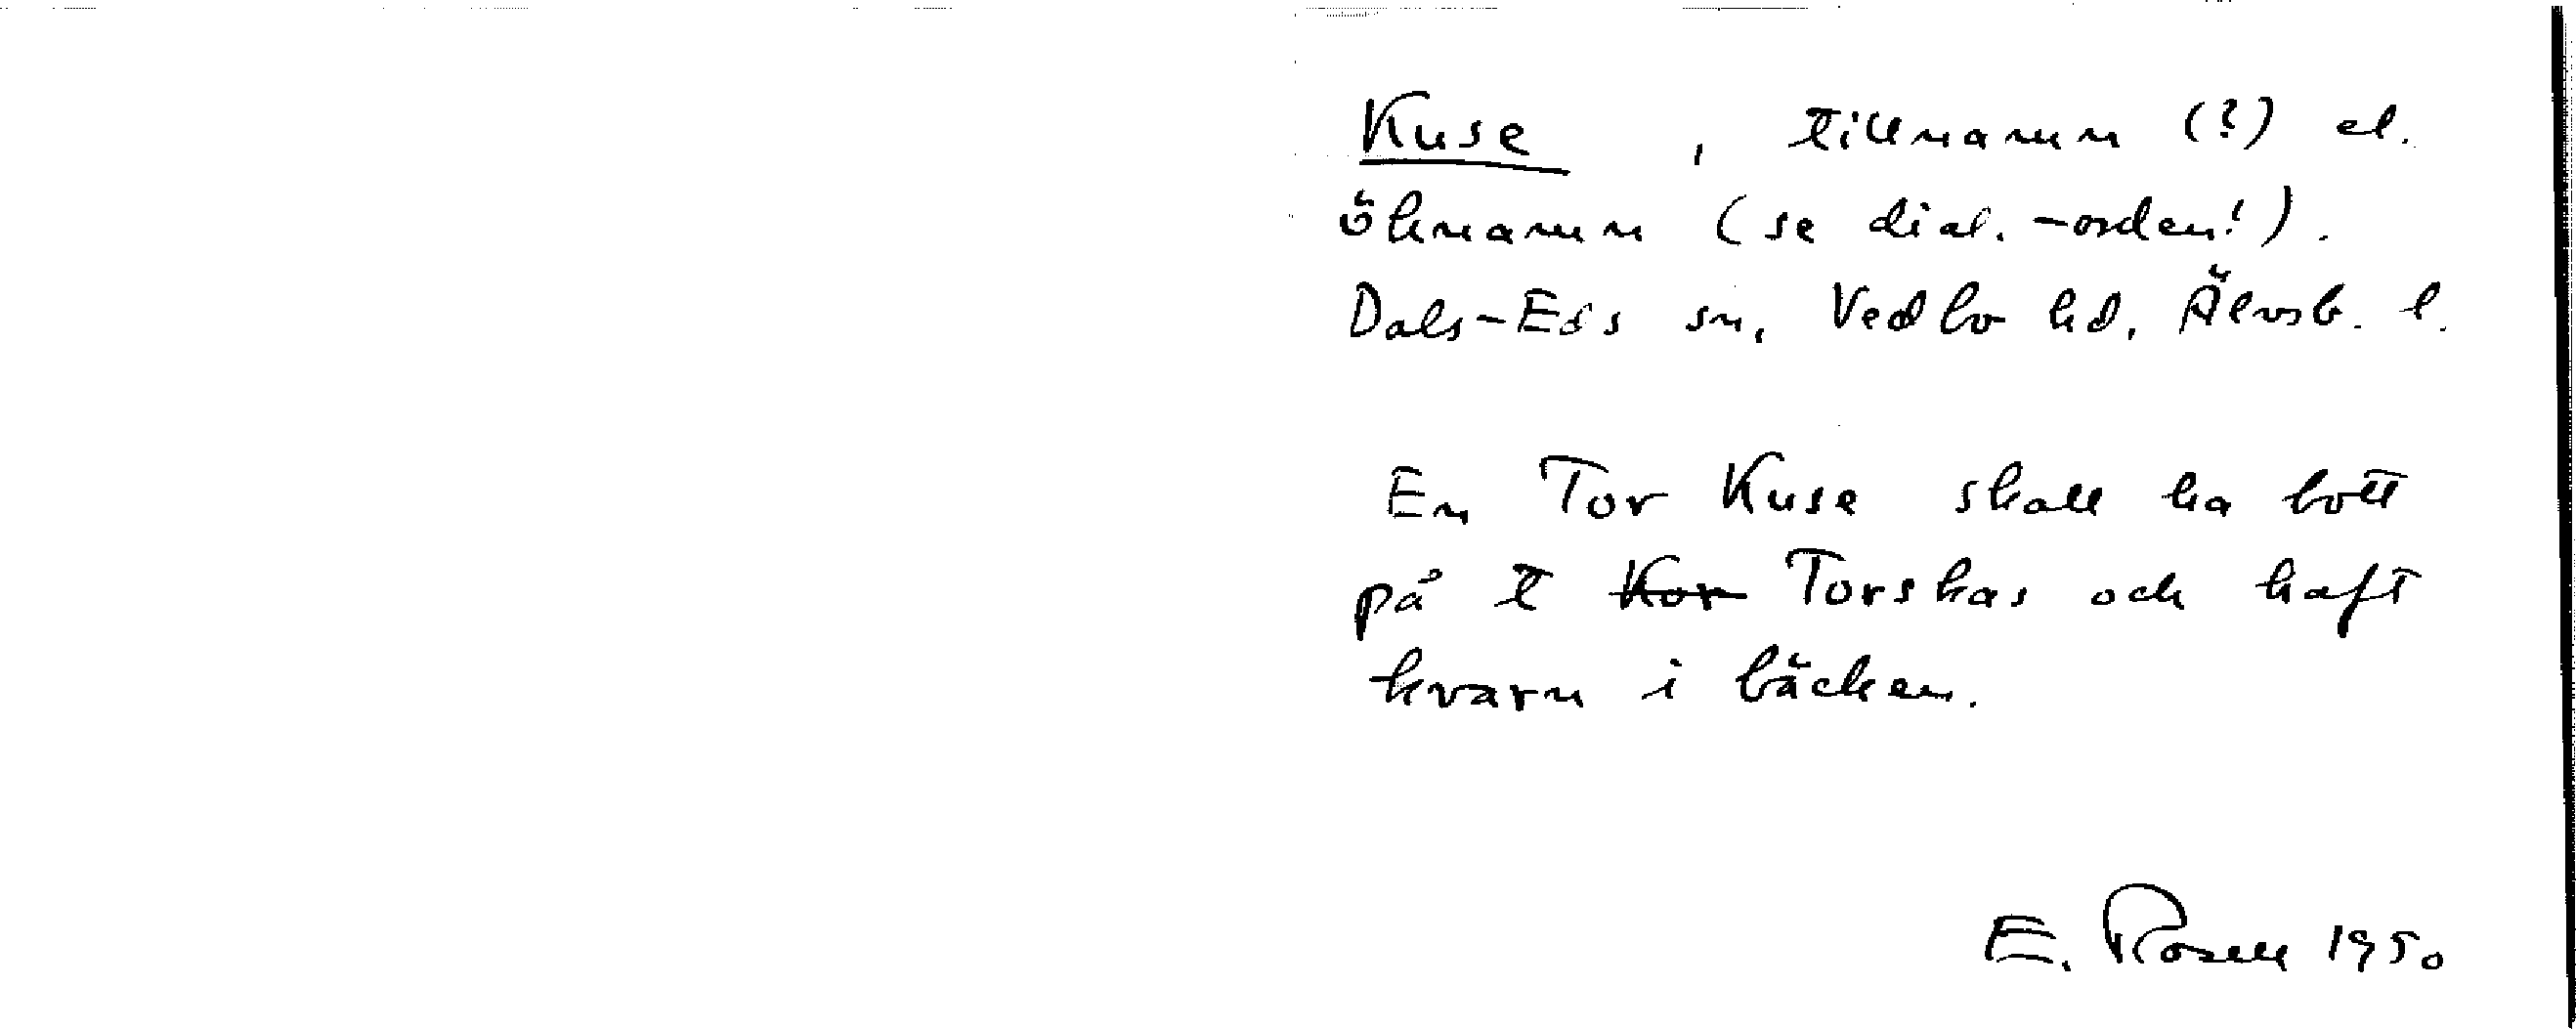 Kuse , tillnamn (?) el.
öknamn (se dial.-orden!).
Dals-Eds sn, Vedbo hd, Älvsb. l.
En Tor Kuse skall ha bott
på t Kor Torskas och haft
kvarn i bäcken.
E. Rosell 1950